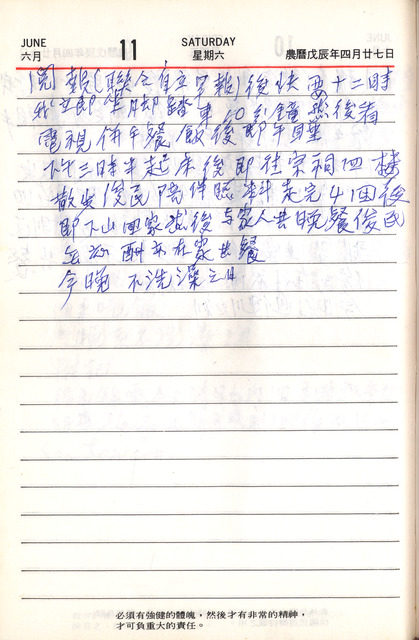 JUNE 11 SATURDAY
六月 星期六 農曆戊辰年四月廿七日
報(聯合自立早報)後快要十二時
我立即 單脚踏車 60分鐘然後看
電視併午餐飯後即午睡
下午三時半起床後即往 四樓
散步俊民陪伴照料走完4回後
即下山回家 後与家人共晚餐俊民
在家共餐
今晚不洗澡之日
必須有強健的體魄,然後才有非常的精神,
才可負重大的責任。